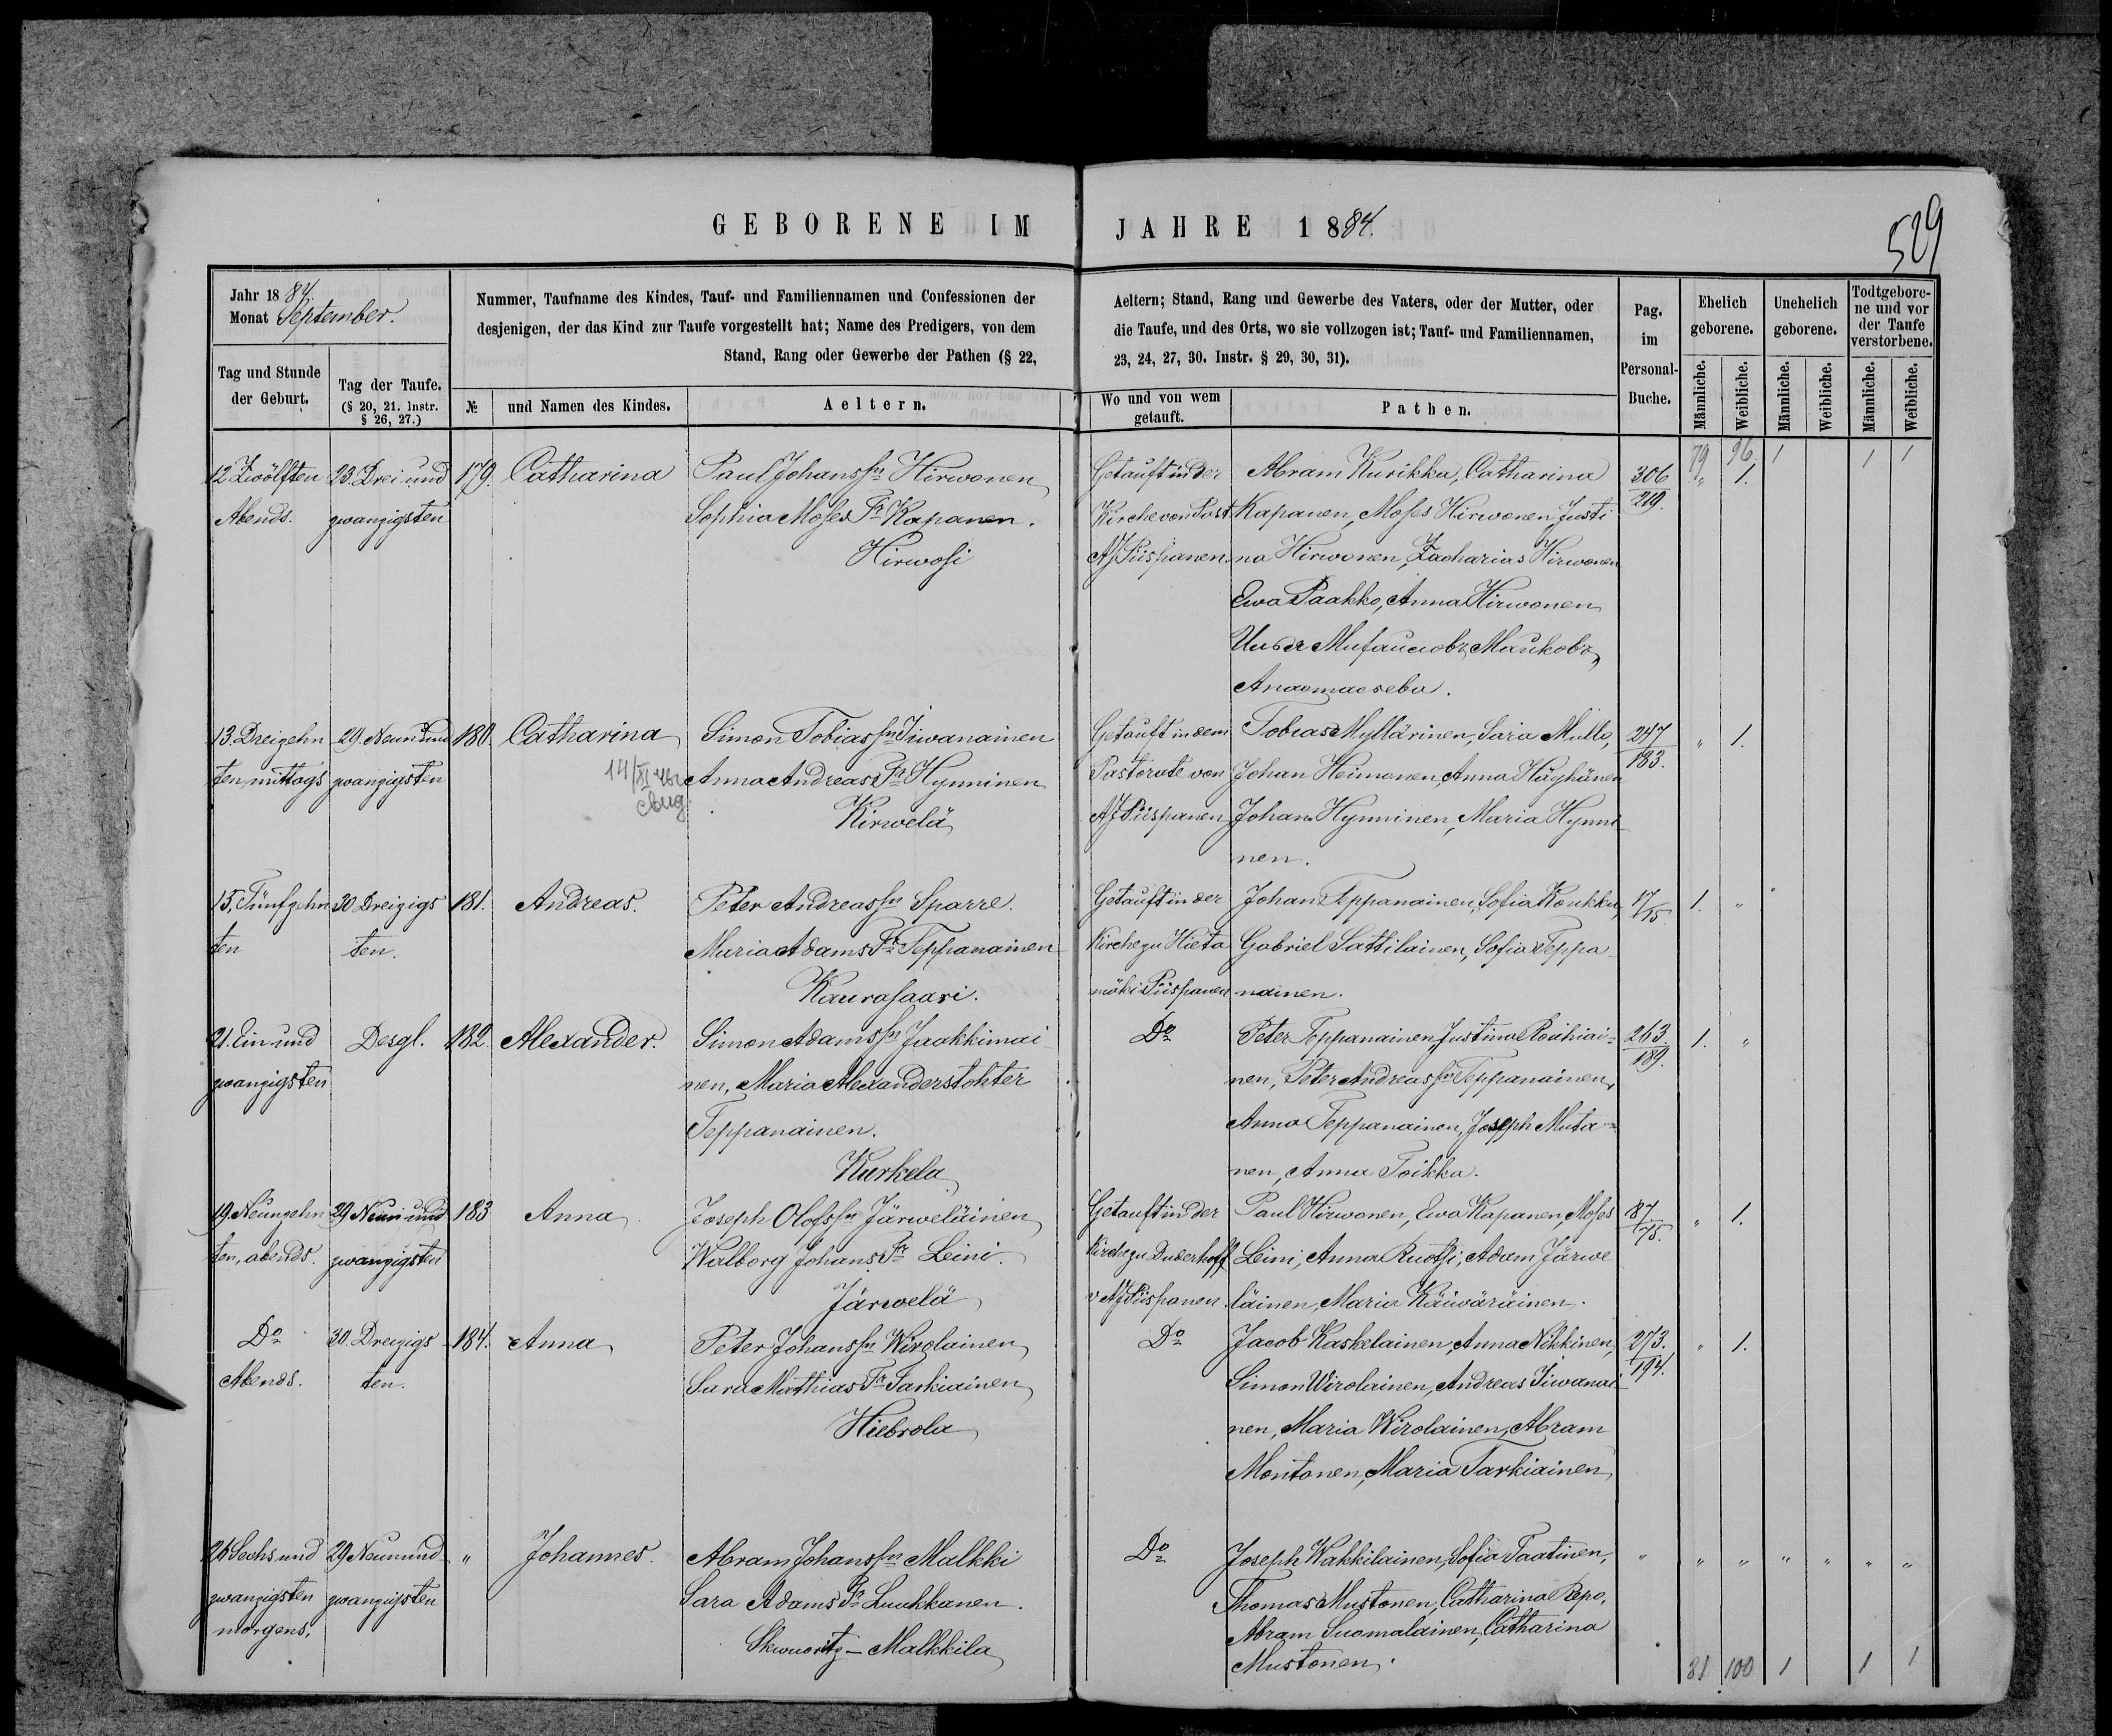 GEBORENE IM JAHRE 1884.
529
Jahr 1884.
Monat September.
Nummer, Taufname des Kindes, Tauf- und Familiennamen und Confessionen der
desjenigen, der das Kind zur Taufe vorgestellt hat; Name des Predigers, von dem
Stand, Rang oder Gewerbe der Pathen (§ 22,
Aeltern; Stand, Rang und Gewerbe des Vaters, oder der Mutter, oder
die Taufe, und des Orts, wo sie vollzogen ist; Tauf- und Familiennamen,
23, 24, 27, 30. Instr. § 29, 30, 31).
Pag.
im
Personal-
Buche.
Ehelich
geborene.
Unehelich
geborene.
Todtgebore-
ne und vor
der Taufe
verstorbene.
Tag und Stunde
der Geburt.
Tag der Taufe.
(§ 20, 21. Instr.
§ 26, 27.)
№
und Namen des Kindes.
Aeltern.
Wo und von wem
getauft.
Pathen.
Männliche.
Weibliche.
Männliche.
Weibliche.
Männliche.
Weibliche.
79 96. 1 1 1
12 Zwölften
Abends.
23. Drei und
zwanzigsten
179.
Catharina
Paul Johanssn Hirwonen
Sophia Moses Tr Kapanen.
Hirwosi
Getauft in der
Kirche von Past
AJ Piispanen
Abram Kurikka, Catharina
Kapanen, Moses Hirwonen, Justi
na Hirwonen, Zacharias Hirwonen
Ewa Paakko, Anna Hirwonen
306
219.
" 1.
13. Dreizehn
ten, mittags
29. Neun und
zwanzigsten
180.
Catharina
14/XI 46г
свид
Simon Tobiassn Tiwanainen
Anna Andreas Tr Hynninen
Kirwelä
Getauft in dem
Pastorate von
AJ Piispanen
Tobias Myllärinen, Saia Mullo,
Johan Heimonen, Anna Häyhänen
Johan Hynninen, Maria Hynni
nen.
247
183.
" 1.
15. Fünfzehn
ten
30 Dreizigs
ten.
181.
Andreas.
Peter Andreassn Sparre.
Maria Adams Tr Teppanainen
Kaurasaari.
Getauft in der
Kirche zu Hieta
mäki Piispanen
Johan Teppanainen, Sofia Koukku,
Gabriel Sattilainen, Sofia Teppa
nainen.
17/15
1. "
21. Ein und
zwanzigsten
Desgl.
182.
Alexander.
Simon Adamssn Jaakkimai
nen, Maria Alexanderstohter
Teppanainen.
Kurkela
Do
Peter Teppanainen, Justina Rouhiai=
nen, Peter Andreassn Teppanainen,
Anna Teppanainen, Joseph Muta=
nen, Anna Toikka.
263.
189.
1. "
19. Neunzehn
ten, abends.
29 Neun und
zwanzigsten
183
Anna
Joseph Olofssn Järweläinen
Walborg Johans Tr Leini.
Järwelä
Getauft in der
Kirche zu Duderhoff
v AJ Piispanen.
Paul Hirwonen, Ewa Kapanen, Moses
Leini, Anna Ruotsi, Adam Järwe
läinen, Maria Käiwäräinen.
87/75.
" 1.
Do
Abends.
30. Dreizigs
ten.
184.
Anna
Peter Johanssn Wirolainen
Sara Mathias Tr Tarkiainen
Hiebrola
Do
Jacob Kaskelainen, Anna Nikkinen,
Simon Wirolainen, Andreas Tiwanai
nen, Maria Wirolainen, Abram
Montonen, Maria Tarkiainen
273.
194.
" 1.
26 Sechs und
zwanzigsten
morgens.
29 Neun und
zwanzigsten
"
Johannes.
Abram Johanssn Malkki
Sara Adams Tr Luukkanen.
Skworitz - Malkkila
Do
Joseph Wakkilainen, Sofia Taatinen,
Thomas Mustonen, Catharina Repo,
Abram Suomalainen, Catharina
Mustonen.
" " " " " " "
81 100 1 1 1